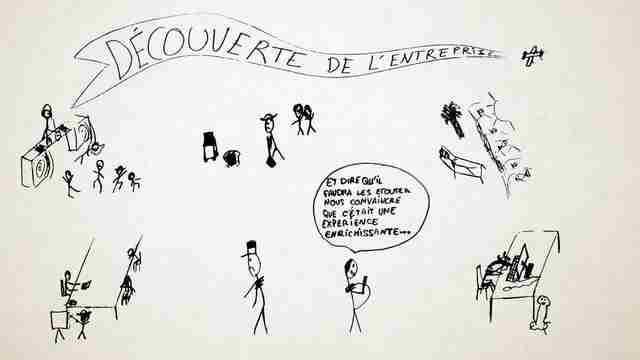 DÉCOUVERTE DE L'ENTREPRISE
ET DIRE QU'IL
FAUDRA LES ÉCOUTER
NOUS CONVAINCRE
QUE C'ÉTAIT UNE
EXPERIENCE
ENRICHISSANTE...